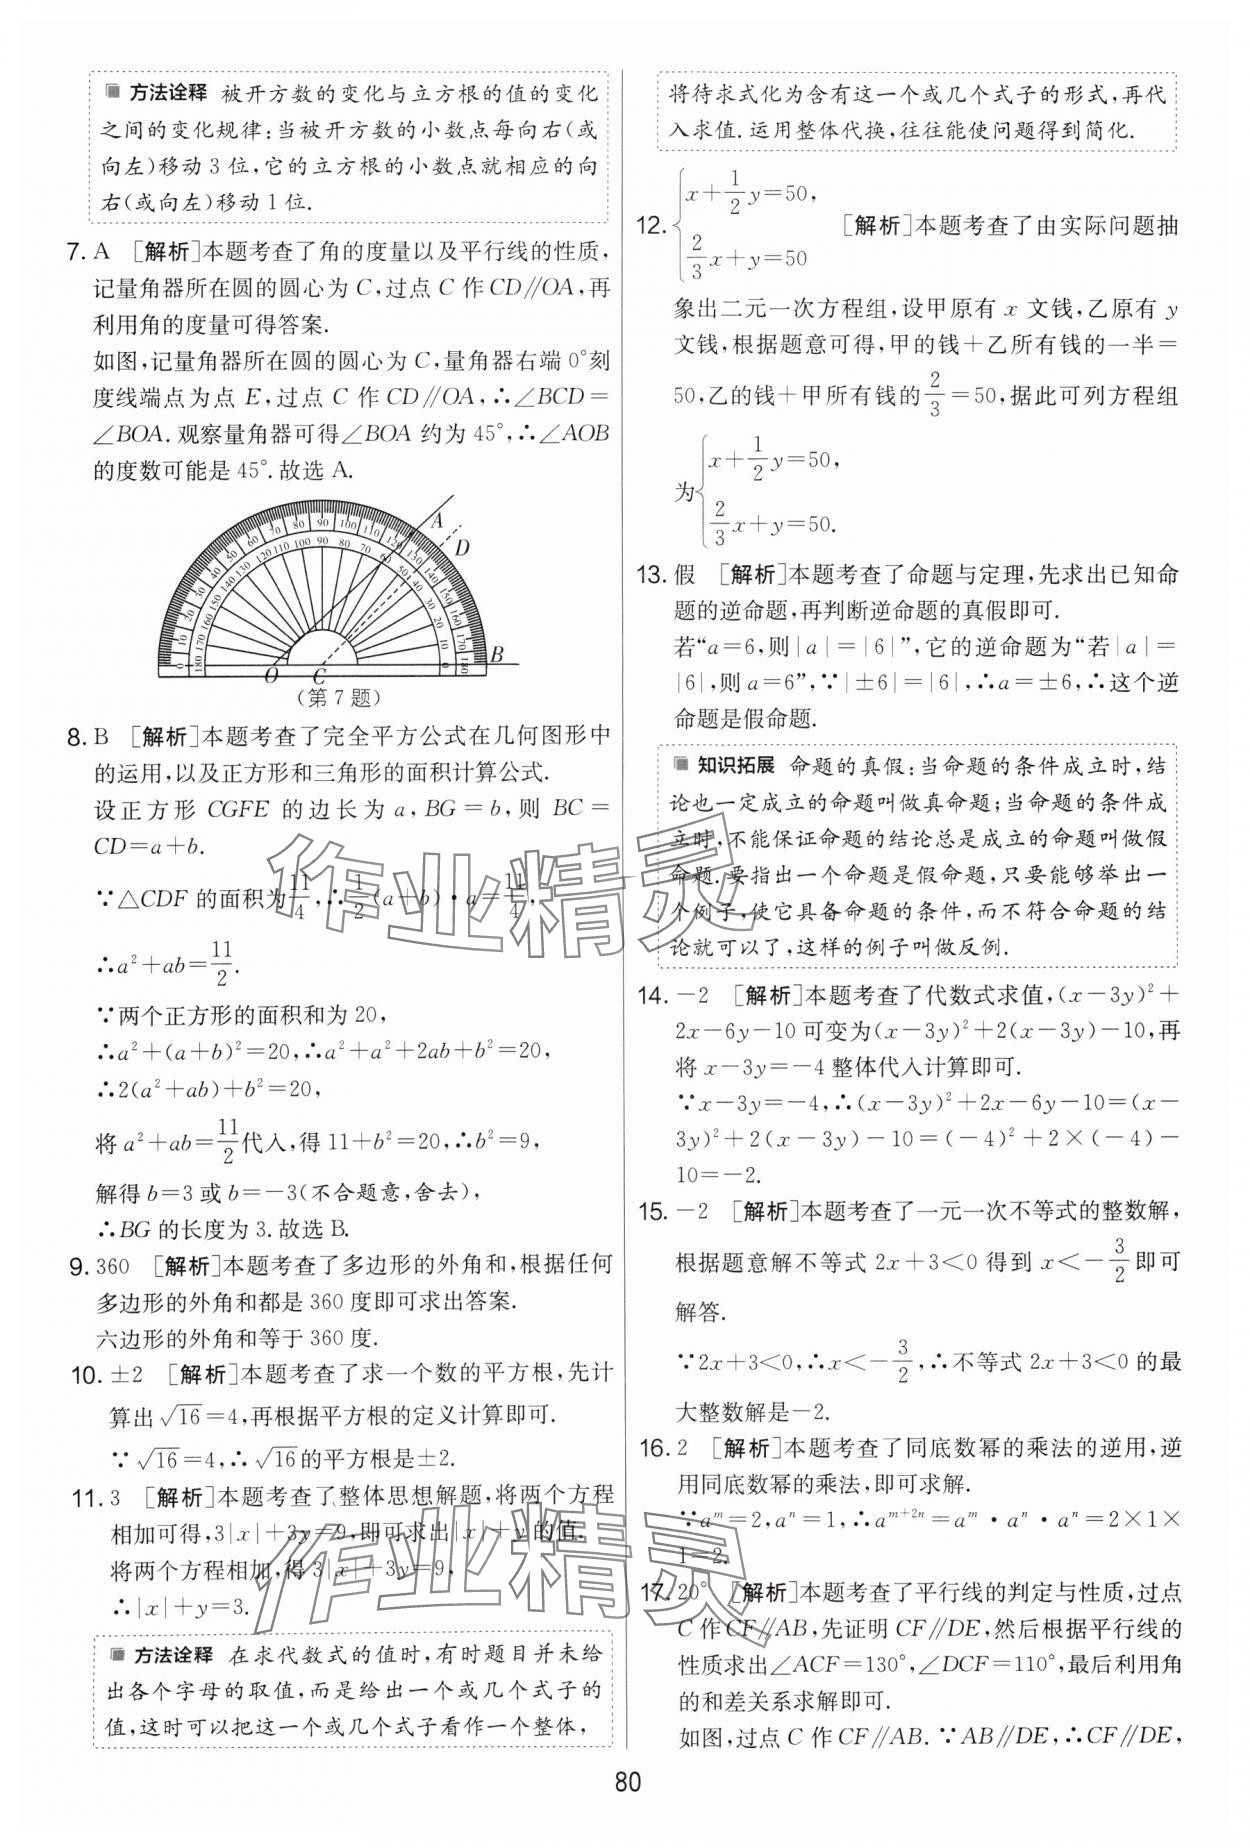 方法诠释 被开方数的变化与立方根的值的变化
之间的变化规律:当被开方数的小数点每向右(或
向左)移动 3 位,它的立方根的小数点就相应的向
右(或向左)移动 1 位.
7. A [解析]本题考查了角的度量以及平行线的性质,
记量角器所在圆的圆心为 C,过点 C 作 CD∥OA,再
利用角的度量可得答案.
如图,记量角器所在圆的圆心为 C,量角器右端 0°刻
度线端点为点 E,过点 C 作 CD∥OA,∴∠BCD=
∠BOA. 观察量角器可得∠BOA 约为 45°,∴∠AOB
的度数可能是 45°. 故选 A.
A
D
B
O
C
(第 7 题)
8. B [解析]本题考查了完全平方公式在几何图形中
的运用,以及正方形和三角形的面积计算公式.
设正方形 CGFE 的边长为 a,BG=b,则 BC=
CD=a+b.
∵△CDF 的面积为11/4,∴1/2(a+b)·a=11/4,
∴a²+ab=11/2.
∵两个正方形的面积和为 20,
∴a²+(a+b)²=20,∴a²+a²+2ab+b²=20,
∴2(a²+ab)+b²=20,
将 a²+ab=11/2代入,得 11+b²=20,∴b²=9,
解得 b=3 或 b=-3(不合题意,舍去),
∴BG 的长度为 3. 故选 B.
9. 360 [解析]本题考查了多边形的外角和,根据任何
多边形的外角和都是 360 度即可求出答案.
六边形的外角和等于 360 度.
10. ±2 [解析]本题考查了求一个数的平方根,先计
算出√16=4,再根据平方根的定义计算即可.
∵√16=4,∴√16的平方根是±2.
11. 3 [解析]本题考查了整体思想解题,将两个方程
相加可得,3|x|+3y=9,即可求出|x|+y 的值.
将两个方程相加,得 3|x|+3y=9,
∴|x|+y=3.
方法诠释 在求代数式的值时,有时题目并未给
出各个字母的取值,而是给出一个或几个式子的
值,这时可以把这一个或几个式子看作一个整体,
将待求式化为含有这一个或几个式子的形式,再代
入求值. 运用整体代换,往往能使问题得到简化.
12. {x+1/2y=50, 2/3x+y=50 [解析]本题考查了由实际问题抽
象出二元一次方程组,设甲原有 x 文钱,乙原有 y
文钱,根据题意可得,甲的钱+乙所有钱的一半=
50,乙的钱+甲所有钱的2/3=50,据此可列方程组
为{x+1/2y=50, 2/3x+y=50.
13. 假 [解析]本题考查了命题与定理,先求出已知命
题的逆命题,再判断逆命题的真假即可.
若“a=6,则|a|=|6|”,它的逆命题为“若|a|=
|6|,则 a=6”,∵|±6|=|6|,∴a=±6,∴这个逆
命题是假命题.
知识拓展 命题的真假:当命题的条件成立时,结
论也一定成立的命题叫做真命题;当命题的条件成
立时,不能保证命题的结论总是成立的命题叫做假
命题. 要指出一个命题是假命题,只要能够举出一
个例子,使它具备命题的条件,而不符合命题的结
论就可以了,这样的例子叫做反例.
14. -2 [解析]本题考查了代数式求值,(x-3y)²+
2x-6y-10 可变为(x-3y)²+2(x-3y)-10,再
将 x-3y=-4 整体代入计算即可.
∵x-3y=-4,∴(x-3y)²+2x-6y-10=(x-
3y)²+2(x-3y)-10=(-4)²+2×(-4)-
10=-2.
15. -2 [解析]本题考查了一元一次不等式的整数解,
根据题意解不等式 2x+3<0 得到 x<-3/2即可
解答.
∵2x+3<0,∴x<-3/2,∴不等式 2x+3<0 的最
大整数解是-2.
16. 2 [解析]本题考查了同底数幂的乘法的逆用,逆
用同底数幂的乘法,即可求解.
∵aᵐ=2,aⁿ=1,∴aᵐ⁺²ⁿ=aᵐ·aⁿ·aⁿ=2×1×
1=2.
17. 20° [解析]本题考查了平行线的判定与性质,过点
C 作 CF∥AB,先证明 CF∥DE,然后根据平行线的
性质求出∠ACF=130°,∠DCF=110°,最后利用角
的和差关系求解即可.
如图,过点 C 作 CF∥AB. ∵AB∥DE,∴CF∥DE,
80
作业精灵
作业精灵